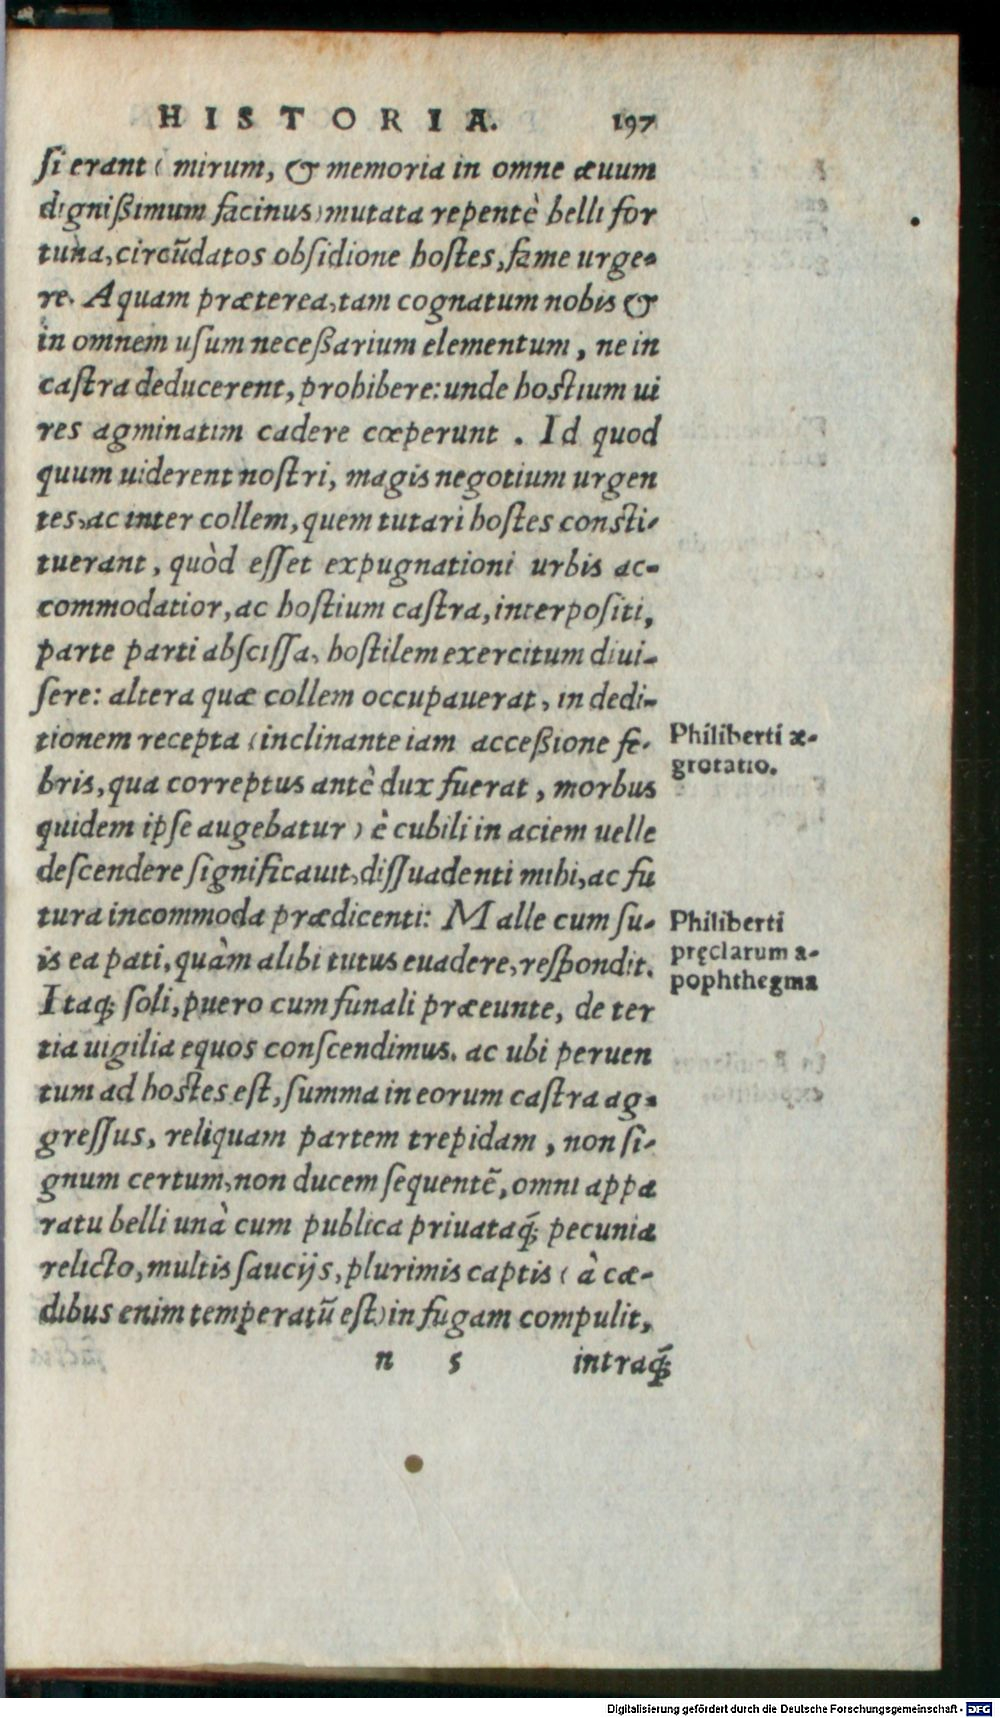 HISTORIA. 197
si erant ( mirum, & memoria in omne æuum
dignißimum facinus) mutata repentè belli for
tuna, circũdatos obsidione hostes, fame urge-
re. Aquam præterea, tam cognatum nobis &
in omnem usum neceßarium elementum, ne in
castra deducerent, prohibere: unde hostium ui
res agminatim cadere cœperunt. Id quod
quum uiderent nostri, magis negotium urgen
tes, ac inter collem, quem tutari hostes consti-
tuerant, quòd esset expugnationi urbis ac-
commodatior, ac hostium castra, interpositi,
parte parti abscissa, hostilem exercitum diui-
sere: altera quæ collem occupauerat, in dedi-
tionem recepta (inclinante iam acceßione fe-
bris, qua correptus antè dux fuerat, morbus
quidem ipse augebatur) è cubili in aciem uelle
descendere significauit, dissuadenti mihi, ac fu
tura incommoda prædicenti: Malle cum su-
is ea pati, quàm alibi tutus euadere, respondit.
Itaq; soli, puero cum funali præeunte, de ter
tia uigilia equos conscendimus. ac ubi peruen
tum ad hostes est, summa in eorum castra ag-
gressus, reliquam partem trepidam, non si-
gnum certum, non ducem sequentẽ, omni appa
ratu belli unà cum publica priuataq́; pecunia
relicto, multis saucijs, plurimis captis ( à cæ-
dibus enim temperatũ est) in fugam compulit,
n 5 intraq́;
Philiberti æ-
grotatio.
Philiberti
pręclarum a-
pophthegma
Digitalisierung gefördert durch die Deutsche Forschungsgemeinschaft - DFG